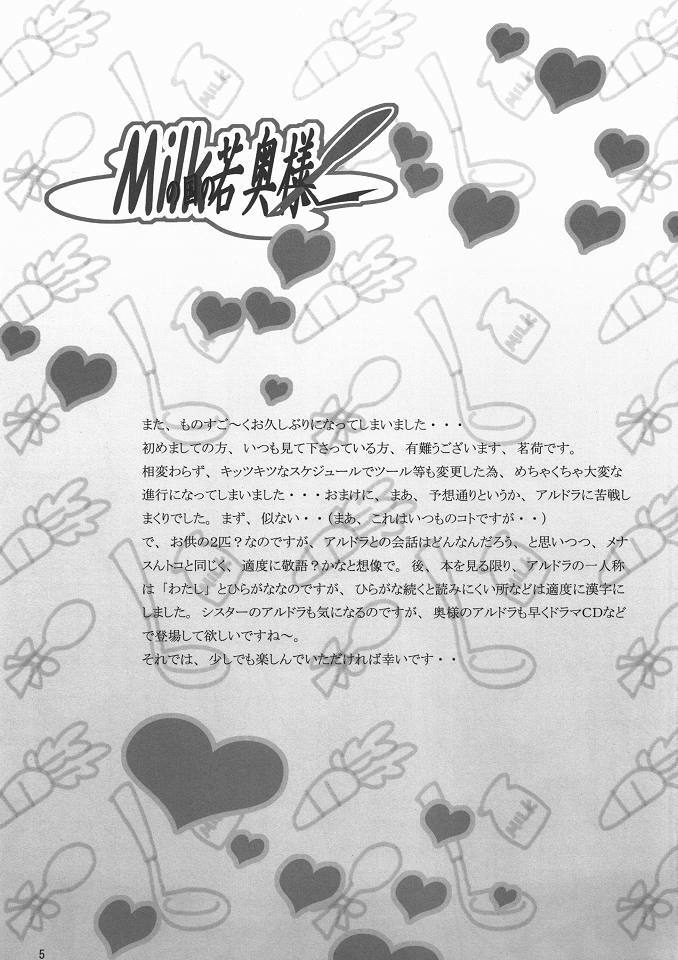 Milkの国の苦奥様
MILK
また、ものすご～くお久しぶりになってしまいました・・・
初めましての方、いつも見て下さっている方、有難うございます、茗荷です。
相変わらず、キッツキツなスケジュールでツール等も変更した為、めちゃくちゃ大変な
進行になってしまいました・・・おまけに、まあ、予想通りというか、アルドラに苦戦し
まくりでした。まず、似ない・・（まあ、これはいつものコトですが・・）
で、お供の2匹？なのですが、アルドラとの会話はどんなんだろう、と思いつつ、メナ
スんトコと同じく、適度に敬語？かなと想像で。後、本を見る限り、アルドラの一人称
は「わたし」とひらがななのですが、ひらがな続くと読みにくい所などは適度に漢字に
しました。シスターのアルドラも気になるのですが、奥様のアルドラも早くドラマCDなど
で登場して欲しいですね～。
それでは、少しでも楽しんでいただければ幸いです・・
MILK
MILK
5